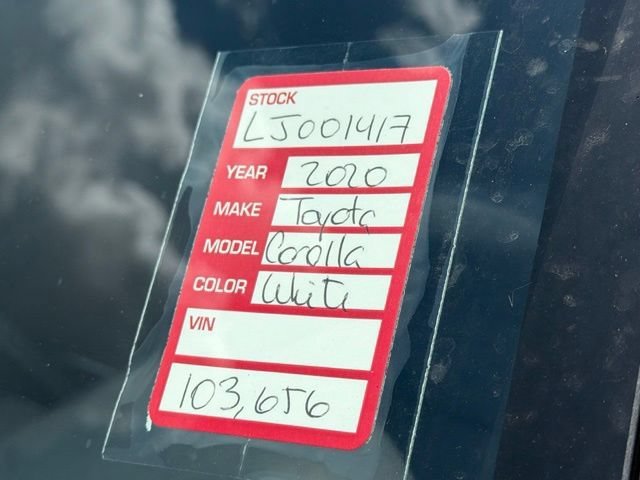 STOCK
LJ001417
YEAR 2020
MAKE Toyota
MODEL Corolla
COLOR White
VIN
103,656